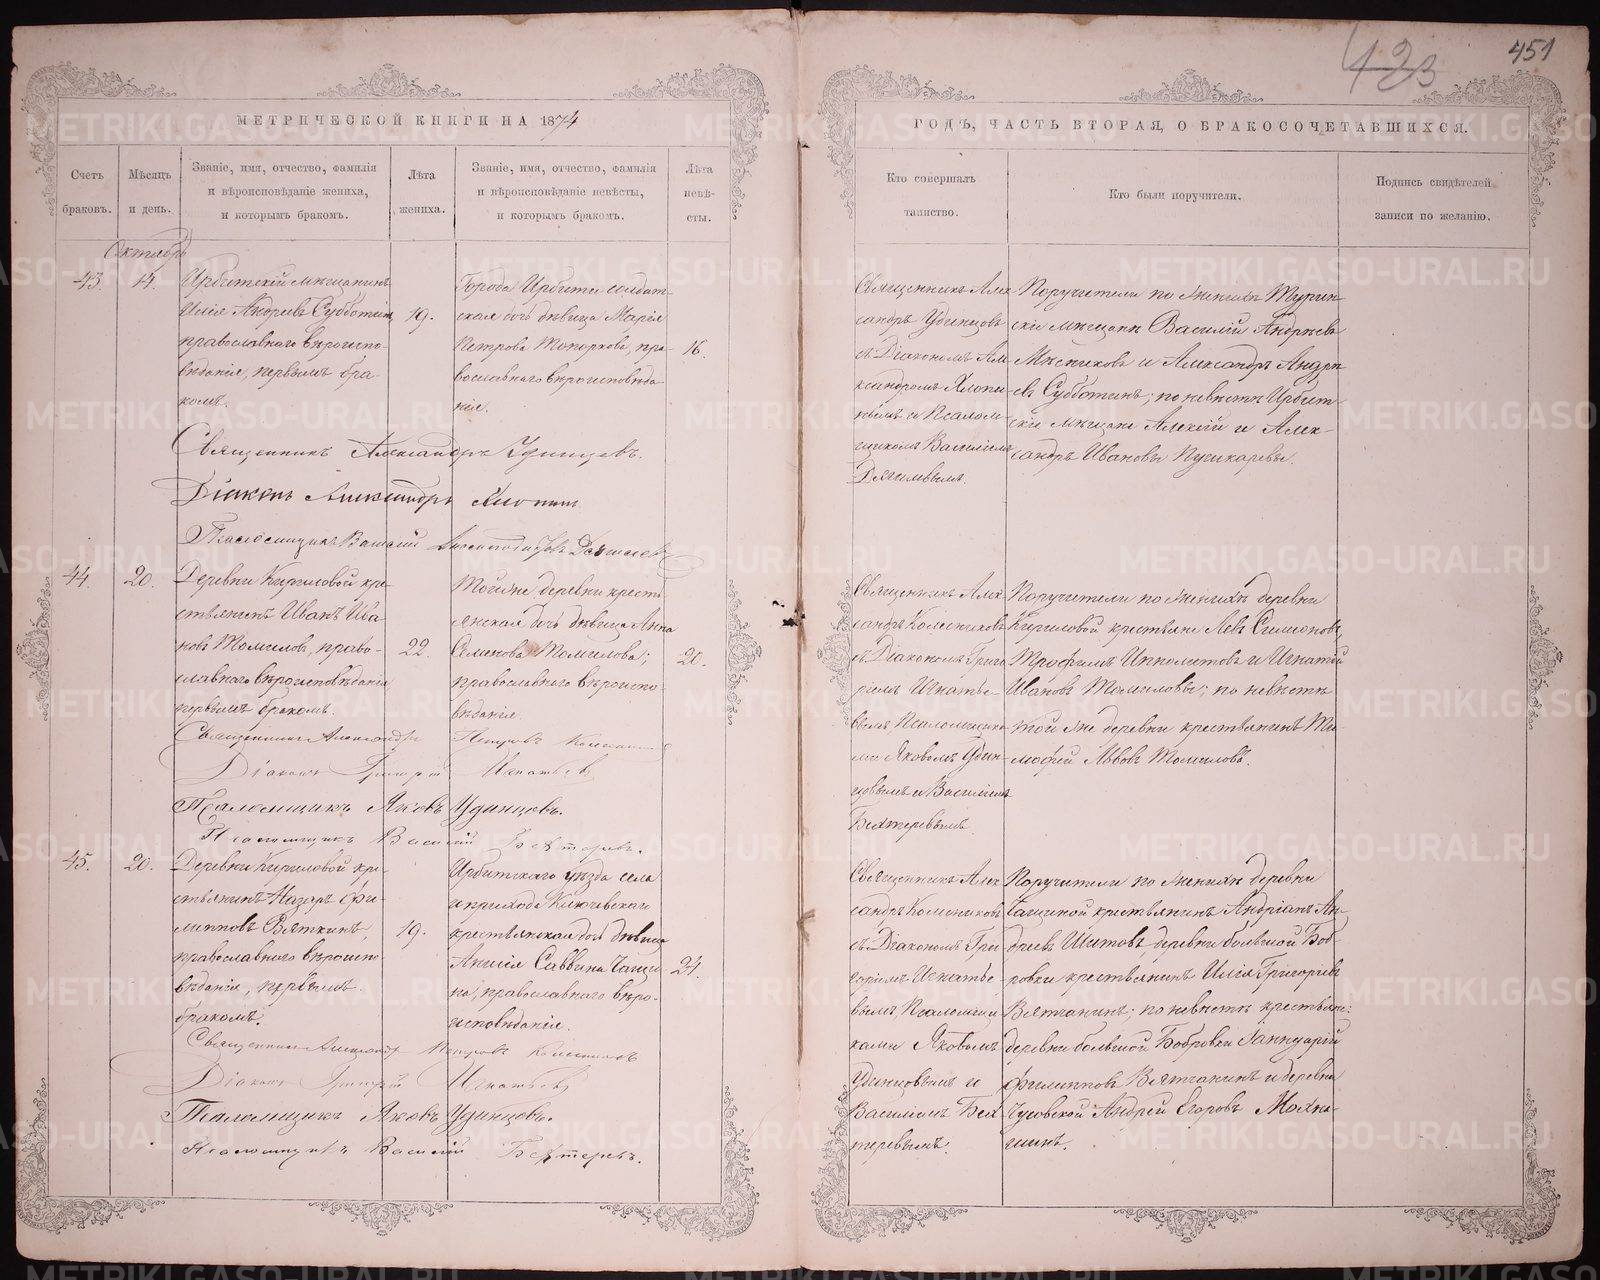 423
451
МЕТРИЧЕСКОЙ КНИГИ НА 1874
ГОДЪ, ЧАСТЬ ВТОРАЯ, О БРАКОСОЧЕТАВШИХСЯ.
Счетъ
браковъ.
Мѣсяцъ
и день.
Званіе, имя, отчество, фамилія
и вѣроисповѣданіе жениха,
и которымъ бракомъ.
Лѣта
жениха.
Званіе, имя, отчество, фамилія
и вѣроисповѣданіе невѣсты,
и которымъ бракомъ.
Лѣта
невѣ-
сты.
Кто совершалъ
таинство.
Кто были поручители.
Подпись свидѣтелей
записи по желанію.
Октябрь
43.
14.
Ирбитскій мѣщанинъ
Илія Андреевъ Субботинъ,
православнаго вѣроиспо-
вѣданія, первымъ бра-
комъ.
19.
Города Ирбити солдат-
ская дочь дѣвица Марія
Петрова Топоркова, пра-
вославнаго вѣроисповѣда
нія.
16.
Священникъ Алек
сандръ Удинцовъ
съ Діакономъ Ал-
ександромъ Хлопи-
нымъ и Псалом-
щикомъ Василіемъ
Дягилевымъ.
Поручители по женихѣ Турин-
скіе мѣщане Василій Андреевъ
Мясниковъ и Александръ Андре
евъ Субботинъ; по невѣстѣ Ирбит-
скіе мѣщане Алексѣй и Алек-
сандръ Ивановы Пушкаревы.
Священникъ Александръ Удинцевъ.
Діаконъ Александръ Хлопинъ
Псаломщикъ Василій Дягилевъ
44.
20.
Деревни Кириловой кре-
стьянинъ Иванъ Ива
новъ Томиловъ, право-
славнаго вѣроисповѣданія
первымъ бракомъ.
22.
Той же деревни кресть
янская дочь дѣвица Анна
Семенова Томилова;
православнаго вѣроиспо-
вѣданія.
20.
Священникъ Алек
сандръ Колесниковъ
съ Діакономъ Григо
ріемъ Игнатье-
вымъ, Псаломщика
ми Яковомъ Удин-
цовымъ и Василіемъ
Бехтеревымъ.
Поручители по женихѣ деревни
Кириловой крестьяне Левъ Симоновъ,
Трофимъ Ипполитовъ и Игнатій
Ивановъ Томиловы; по невѣстѣ
той же деревни крестьянинъ Ти-
мофей Львовъ Томиловъ.
Священникъ Александръ Петровъ Колесниковъ
Діаконъ Григорій Игнатьевъ
Псаломщикъ Яковъ Удинцовъ.
Псаломщикъ Василій Бехтеревъ.
45.
20.
Деревни Кириловой кре-
стьянинъ Назаръ Фи-
липповъ Вяткинъ,
православнаго вѣроиспо
вѣданія, первымъ
бракомъ.
19.
Ирбитскаго уѣзда села
и прихода Ключевскаго
крестьянская дочь дѣвица
Анисія Саввина Чащи
на, православнаго вѣро-
исповѣданія.
24.
Священникъ Алек
сандръ Колесниковъ
съ Діакономъ Гри-
горіемъ Игнатье-
вымъ Псаломщи
ками Яковомъ
Удинцовымъ и
Василіемъ Бех
теревымъ.
Поручители по женихѣ деревни
Чащиной крестьянинъ Андріанъ Ан-
дреевъ Шитовъ, деревни большой Боб-
ровки крестьянинъ Илія Григорьевъ
Вятчанинъ; по невѣстѣ крестьяне:
деревни большой Бобровки Іаннуарій
Филипповъ Вятчанинъ и деревни
Чусовской Андрей Егоровъ Мохны-
шинъ.
Священникъ Александръ Петровъ Колесниковъ
Діаконъ Григорій Игнатьевъ
Псаломщикъ Яковъ Удинцовъ.
Псаломщикъ Василій Бехтеревъ.
METRIKI.GASO-URAL.RU